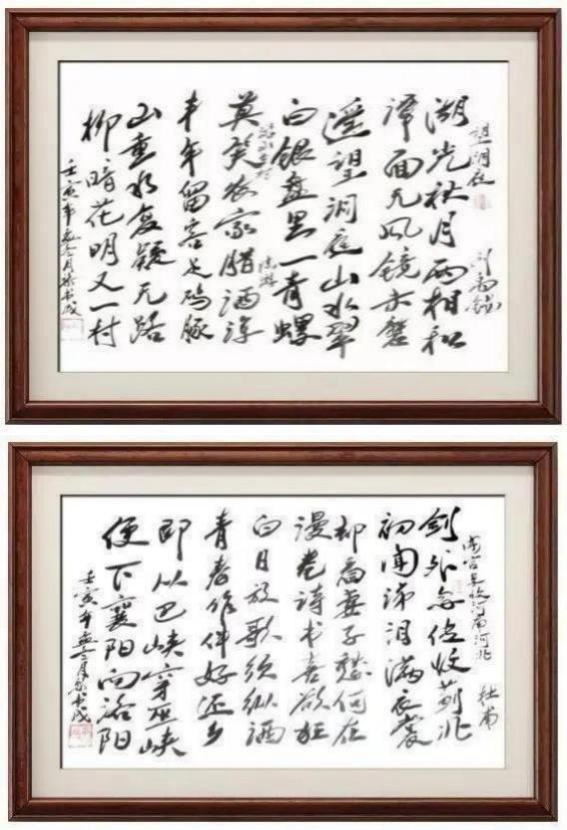 望洞庭
刘禹锡
湖光秋月两相和
潭面无风镜未磨
遥望洞庭山水翠
白银盘里一青螺
游山西村
陆游
莫笑农家腊酒浑
丰年留客足鸡豚
山重水复疑无路
柳暗花明又一村
壬寅年 月 书成
闻官军收河南河北
杜甫
剑外忽传收蓟北
初闻涕泪满衣裳
却看妻子愁何在
漫卷诗书喜欲狂
白日放歌须纵酒
青春作伴好还乡
即从巴峡穿巫峡
便下襄阳向洛阳
壬寅年 月 书成